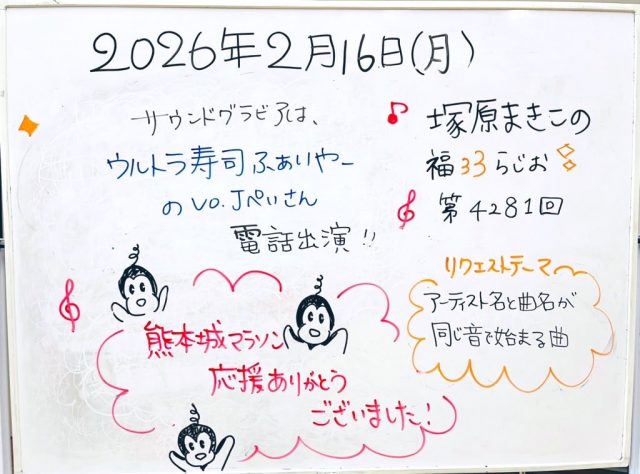 2026年2月16日(月)
サウンドグラビアは、
ウルトラ寿司ふぁいやー
のvo.Jぺいさん
電話出演!!
塚原まきこの
福ろろらじお
第4281回
リクエストテーマ
アーティスト名と曲名が
同じ音で始まる曲
熊本城マラソン
応援ありがとう
ございました!